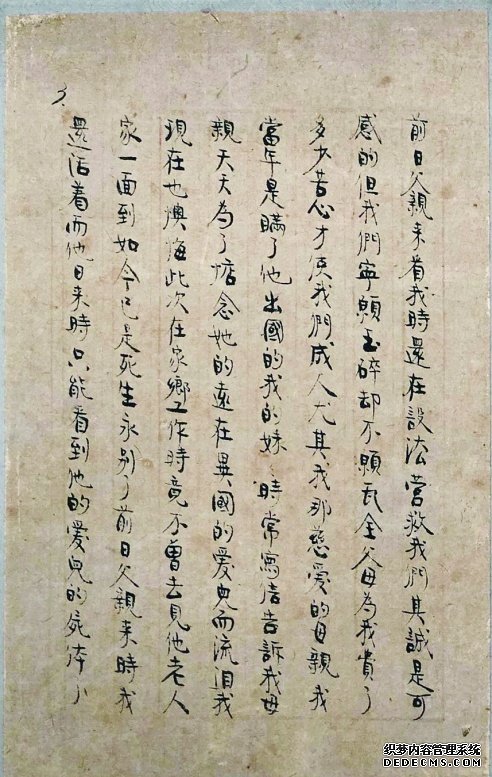 3.
前日父親来看我時還在設法营救我們其誠是可
感的但我們寧願玉碎却不願瓦全父母為我費了
多少苦心才使我們成人尤其我那慈爱的母親我
當年是瞞了他出國的我的妹:時常寫信告訴我母
親天天为了惦念她的遠在異國的爱兒而流泪我
現在也懊悔此次在家鄉工作時竟不曾去見他老人
家一面到如今已是死生永别了前日父親来時我
還活着而他日来時只能看到他的爱兒的屍体了
织梦内容管理系统
DEDECMS.COM